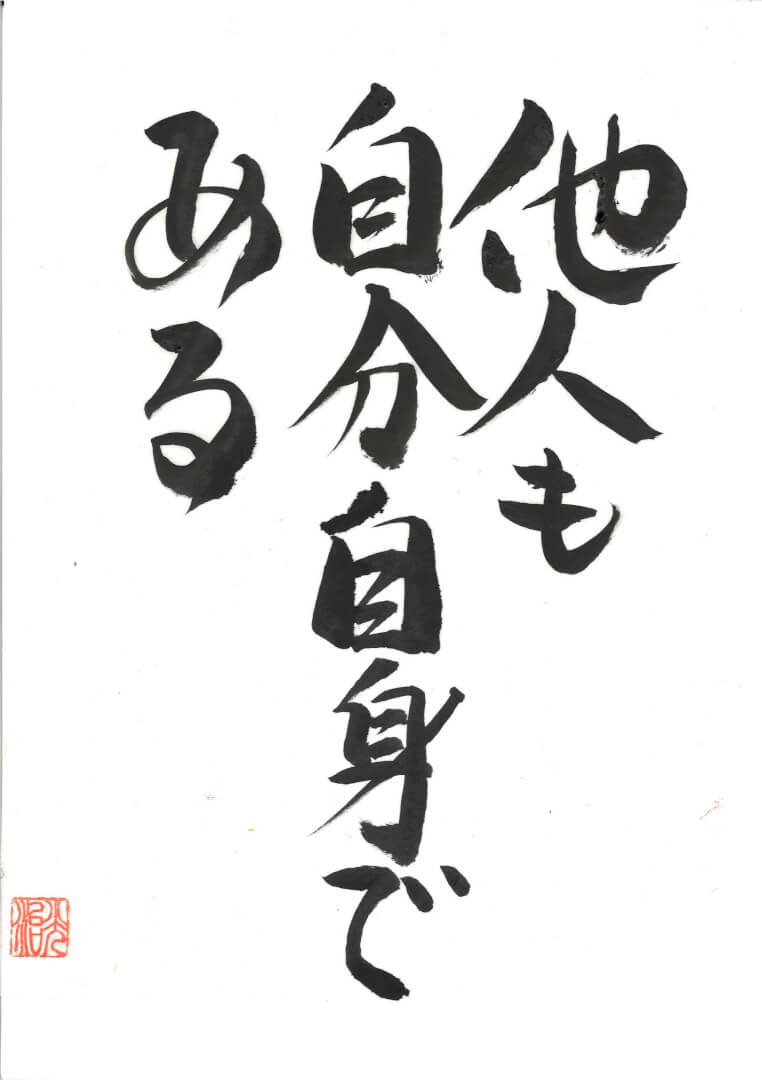 他人も
自分自身で
ある